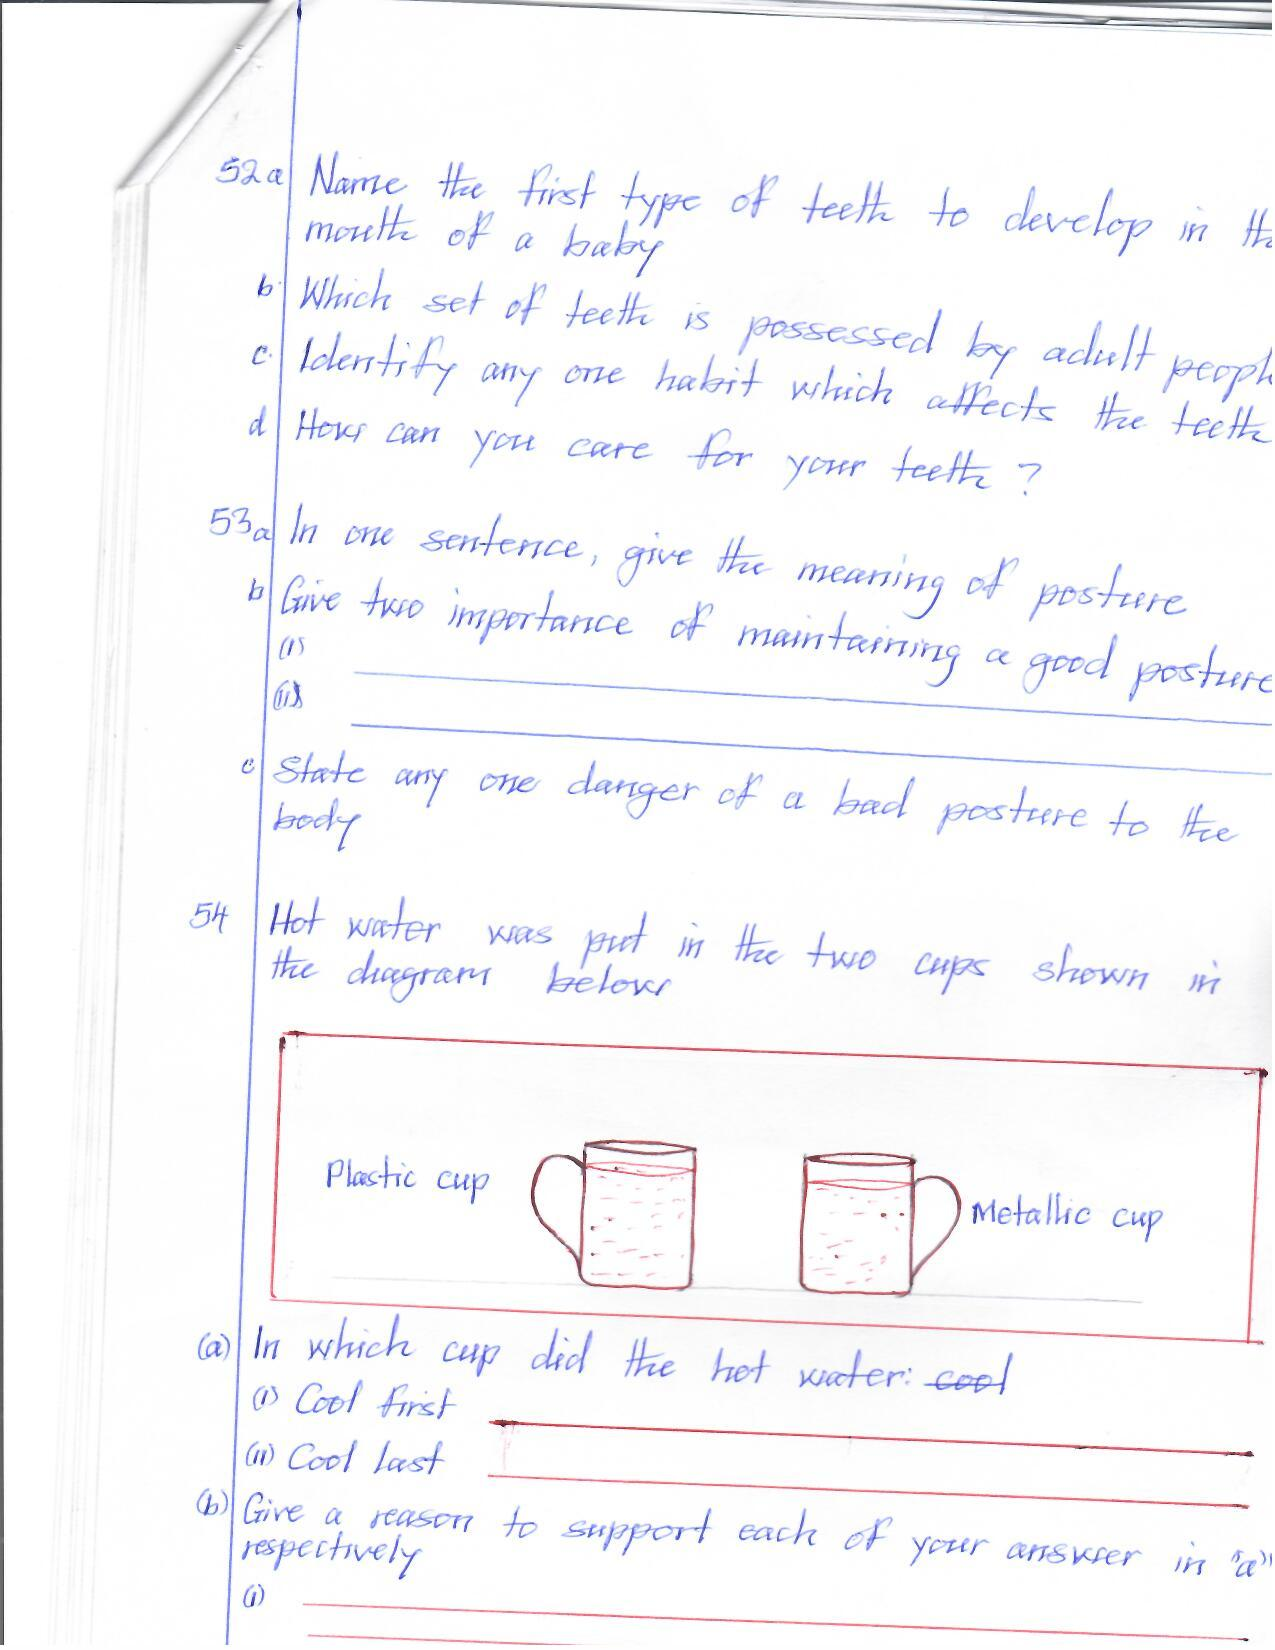 52a Name the first type of teeth to develop in
mouth of a baby
b. Which set of teeth is possessed by adult
c. Identify any one habit which affects the teeth
d How can you care for your teeth ?
53a In one sentence, give the meaning of posture
b Give two importance of maintaining a good posture
(i)
(ii)
c State any one danger of a bad posture to the
body
54 Hot water was put in the two cups shown in
the diagram below
Plastic cup
Metallic cup
(a) In which cup did the hot water: cool
(i) Cool first
(ii) Cool last
(b) Give a reason to support each of your answer in "a"
respectively
(i)